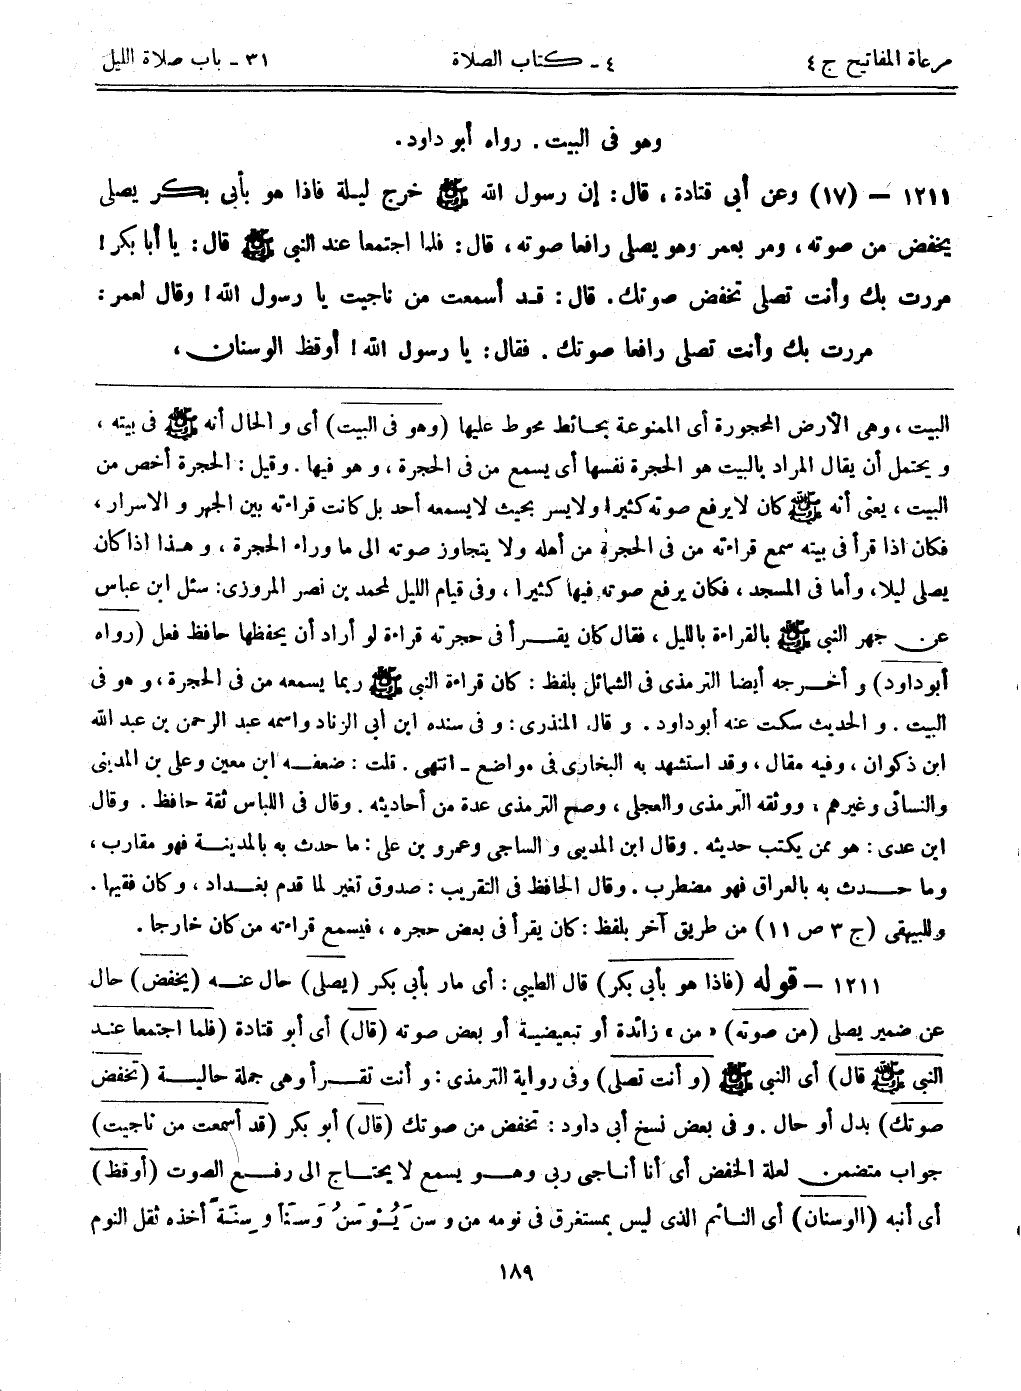 مرعاة المفاتيح ج ٤ ٤ ـ كتاب الصلاة ٣١ ـ باب صلاة الليل
وهو فى البيت . رواه أبو داود .
١٢١١ – (١٧) وعن أبى قتادة ، قال : إن رسول الله ﷺ خرج ليلة فاذا هو بأبى بكر يصلى
يخفض من صوته ، ومر بعمر وهو يصلى رافعا صوته ، قال : فلما اجتمعا عند النبى ﷺ قال : يا أبا بكر !
مررت بك وأنت تصلى تخفض صوتك . قال : قد أسمعت من ناجيت يا رسول الله ! وقال لعمر :
مررت بك وأنت تصلى رافعا صوتك . فقال : يا رسول الله ! أوقظ الوسنان ،
البيت ، وهى الأرض المحجورة أى الممنوعة بحائط محوط عليها (وهو فى البيت) أى و الحال أنه ﷺ فى بيته ،
و يحتمل أن يقال المراد بالبيت هو الحجرة نفسها أى يسمع من فى الحجرة ، و هو فيها . وقيل : الحجرة أخص من
البيت ، يعنى أنه ﷺ كان لا يرفع صوته كثيرا ولا يسر بحيث لا يسمعه أحد بل كانت قراءته بين الجهر و الاسرار ،
فكان اذا قرأ فى بيته سمع قراءته من فى الحجرة من أهله ولا يتجاوز صوته الى ما وراء الحجرة ، و هذا اذا كان
يصلى ليلا ، وأما فى المسجد ، فكان يرفع صوته فيها كثيرا ، وفى قيام الليل لمحمد بن نصر المروزى : سئل ابن عباس
عن جهر النبى ﷺ بالقراءة بالليل ، فقال كان يقرأ فى حجرته قراءة لو أراد أن يحفظها حافظ فعل (رواه
أبو داود) و أخرجه أيضا الترمذى فى الشمائل بلفظ : كان قراءة النبى ﷺ ربما يسمعه من فى الحجرة ، و هو فى
البيت . و الحديث سكت عنه أبو داود . و قال المنذرى : و فى سنده ابن أبى الزناد واسمه عبد الرحمن بن عبد الله
ابن ذكوان ، وفيه مقال ، وقد استشهد به البخارى فى مواضع ـ انتهى . قلت : ضعفه ابن معين وعلى بن المدينى
والنسائى وغيرهم ، ووثقه الترمذى والعجلى ، وصحح الترمذى عدة من أحاديثه . وقال فى اللباس ثقة حافظ . وقال
ابن عدى : هو ممن يكتب حديثه . وقال ابن المدينى و الساجى وعمرو بن على : ما حدث به بالمدينة فهو مقارب ،
وما حدث به بالعراق فهو مضطرب . وقال الحافظ فى التقريب : صدوق تغير لما قدم بغداد ، وكان فقيها .
وللبيهقى (ج ٣ ص ١١) من طريق آخر بلفظ : كان يقرأ فى بعض حجره ، فيسمع قراءته من كان خارجا .
١٢١١ – قوله (فاذا هو بأبى بكر) قال الطيبى : أى مار بأبى بكر (يصلى) حال عنه (يخفض) حال
عن ضمير يصلى (من صوته) « من » زائدة أو تبعيضية أو بعض صوته (قال) أى أبو قتادة (فلما اجتمعا عند
النبى ﷺ قال) أى النبى ﷺ (و أنت تصلى) وفى رواية الترمذى : و أنت تقرأ وهى جملة حالية (تخفض
صوتك) بدل أو حال . و فى بعض نسخ أبى داود : تخفض من صوتك (قال) أبو بكر (قد أسمعت من ناجيت)
جواب متضمن لعلة الخفض أى أنا أناجى ربى وهو يسمع لا يحتاج الى رفع الصوت (أوقظ)
أى أنبه (الوسنان) أى النائم الذى ليس بمستغرق فى نومه من وسن يُوْسَنُ وَسَنًا و سِنَةً أخذه ثقل النوم
١٨٩